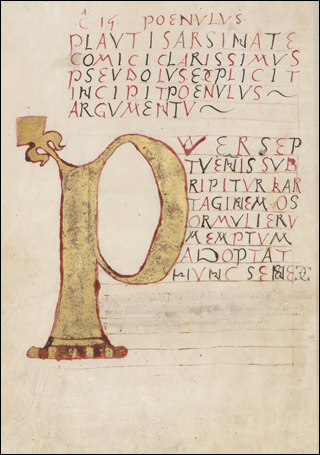 C 19 POENVLVS
PLAVTI SARSINATE
COMICI CLARISSIMVS
PSEVDOLVS EXPLICIT
INCIPIT POENVLVS ~
ARGVMENTV ~
P VER SEP
TVENIS SVB
RIPITVR KAR
TAGINEM OS
OR MVLIERV
M EMPTVM
ADOPTAT
HVNC SENEX